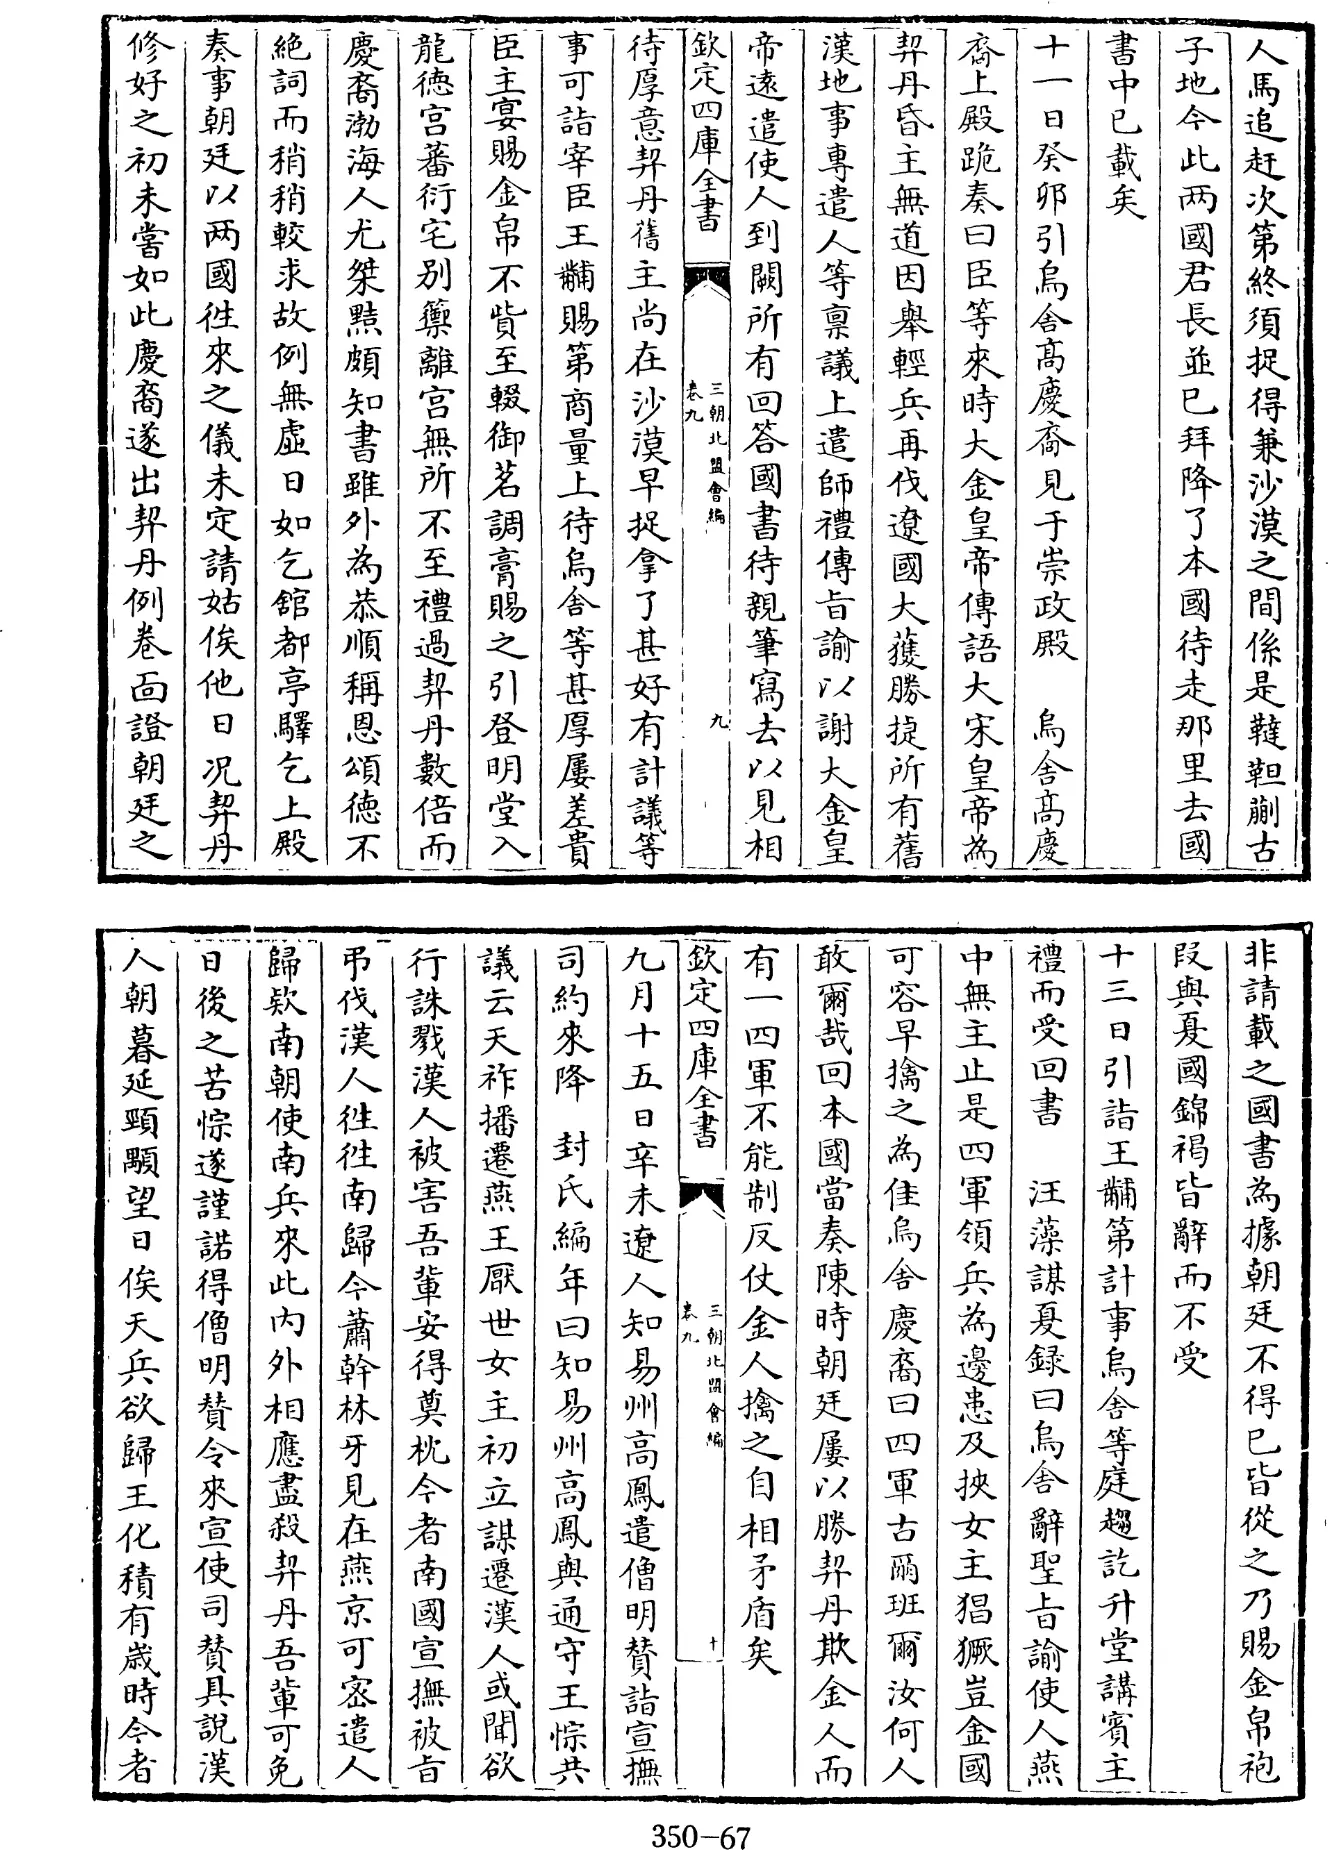 人馬追赶次第終須捉得兼沙漠之間係是韃靼蒯古
子地今此两國君長並已拜降了本國待走那里去國
書中已載矣
十一日癸卯引烏舍髙慶裔見于崇政殿　烏舍髙慶
裔上殿跪奏曰臣等來時大金皇帝傳語大宋皇帝為
契丹昏主無道因舉輕兵再伐遼國大獲勝捷所有舊
漢地事專遣人等禀議上遣師禮傳旨諭以謝大金皇
帝逺遣使人到闕所有回答國書待親筆寫去以見相
欽定四庫全書
三朝北盟會編
卷九
九
待厚意契丹舊主尚在沙漠早捉拿了甚好有計議等
事可詣宰臣王黼賜第商量上待烏舍等甚厚屢差貴
臣主宴賜金帛不貲至輟御茗調膏賜之引登明堂入
龍徳宫蕃衍宅别籞離宫無所不至禮過契丹數倍而
慶裔渤海人尤桀黠頗知書雖外為恭順稱恩頌徳不
絶詞而稍稍較求故例無虚日如乞館都亭驛乞上殿
奏事朝廷以两國徃來之儀未定請姑俟他日况契丹
修好之初未嘗如此慶裔遂出契丹例卷靣證朝廷之
非請載之國書為據朝廷不得已皆從之乃賜金帛袍
叚與夏國錦褐皆辭而不受
十三日引詣王黼第計事烏舍等庭趨訖升堂講賓主
禮而受回書　汪藻謀夏録曰烏舍辭聖旨諭使人燕
中無主止是四軍領兵為邊患及挾女主猖獗豈金國
可容早擒之為佳烏舍慶裔曰四軍古爾班爾汝何人
敢爾哉回本國當奏陳時朝廷屢以勝契丹欺金人而
有一四軍不能制反仗金人擒之自相矛盾矣
欽定四庫全書
三朝北盟會編
卷九
十
九月十五日辛未遼人知易州高鳳遣僧明賛詣宣撫
司約來降　封氏編年曰知易州高鳳與通守王悰共
議云天祚播遷燕王厭世女主初立謀遷漢人或聞欲
行誅戮漢人被害吾輩安得奠枕今者南國宣撫被旨
弔伐漢人徃徃南歸今蕭幹林牙見在燕京可密遣人
歸欵南朝使南兵來此内外相應盡殺契丹吾輩可免
日後之苦悰遂謹諾得僧明賛令來宣使司賛具説漢
人朝暮延頸顒望日俟天兵欲歸王化積有嵗時今者
350-67